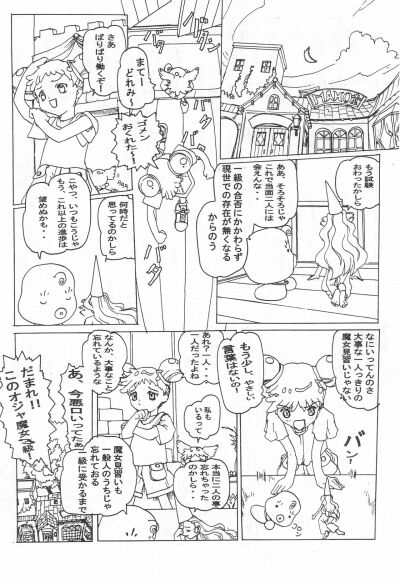 MAHO
もう試験
おわったかしら
ああ、そろそろじゃ
これで当面二人には
会えんな‥
一級の合否にかかわらず
現世での存在が無くなる
からのう
まてー
どれみ〜
ゴメン
おくれた〜
ドタ
ドタ
ドタ
さあ
ばりばり働くぞ!
何時だと
思ってるのかしら
こやつ、いつもこうじゃ
もう、これ以上の進歩は
望めぬかも‥
なにいってんのさ
大事な一人っきりの
魔女見習いじゃない
もう少し、やさしい
言葉はないの!
バン!
コロン
あれ?一人‥
一人だったよね
なんか、大事なこと
忘れているような
私も
いるって
本当に二人の事
忘れちゃった
のかしら‥
魔女見習いも
一般人のうちじゃ
一級に受かるまで
忘れておる
あ、今悪口いってたぁ
だまれ!!
このオジャ魔女7級!